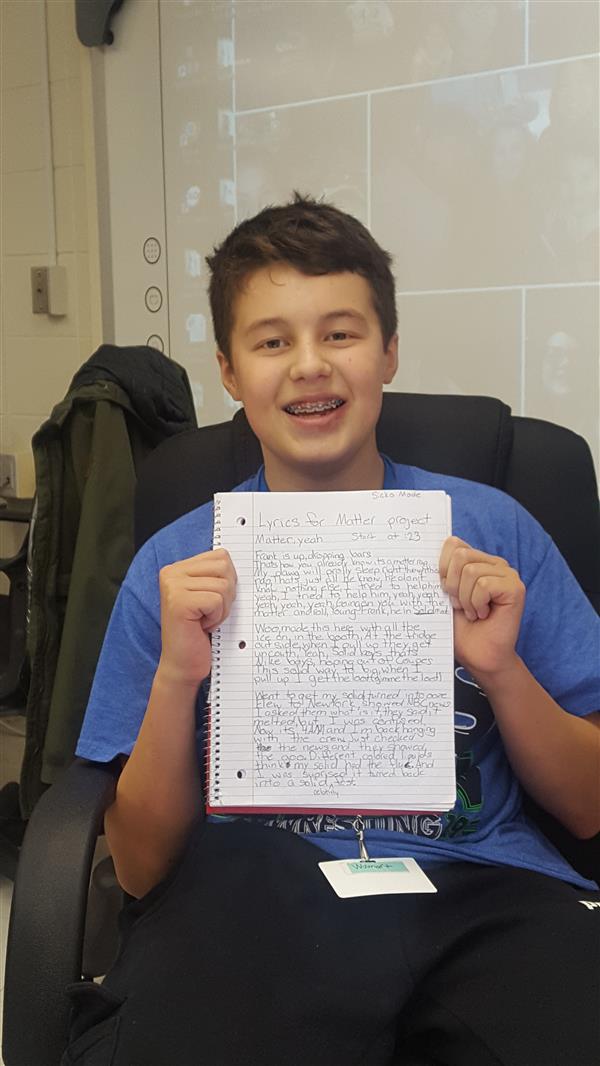 Sicko Mode
Lyrics for Matter project
Matter, yeah Start at :23
Frank is up, dropping bars
Thats how you already know its a matter rap
My dawg will prolly sleep right through this
rap thats just all he know, he don't
know nothing else, I tried to help him
yeah, I tried to help him, yeah, yeah
yeah, yeah, yeah bangen you with the
matter and roll, young frank, he in solid mode
Woo, made this here with all the
ice on, in the booth. At the fridge
outside, when I pull up they get
uncouth, Yeah, Solid boys thats
Nike boys, hoping out of Coupes
This solid way to big, when I
pull up I get the loot (gimme the loot!)
Went to get my solid turned into ooze
Flew to Newyork showed NBC news
I asked them what is it, they said it
melted, but I was confused
Now its 4AM and I'm back hanging
with the crew. Just checked
the news and, they showed
the ooo. Different colored liquids
think my solid had the flu. And
I was suprised it turned back
into a solid, test
celebrity
WRESTLING
Walmart